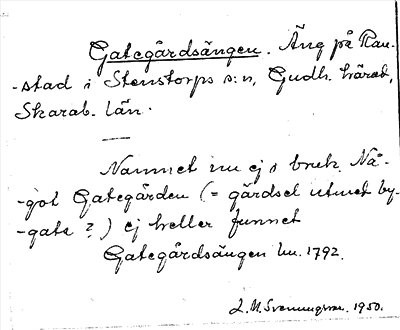 Gategärdsängen. Äng på Ran-
-stad i Stenstorps s:n, Gudh. härad,
Skarab. län.
Namnet nu ej i bruk. Nå-
-got Gategärden (= gärdsel utmet by-
-gata ?) ej heller funnet
Gategärdsängen lm. 1792.
L. M. Svenungsson. 1950.